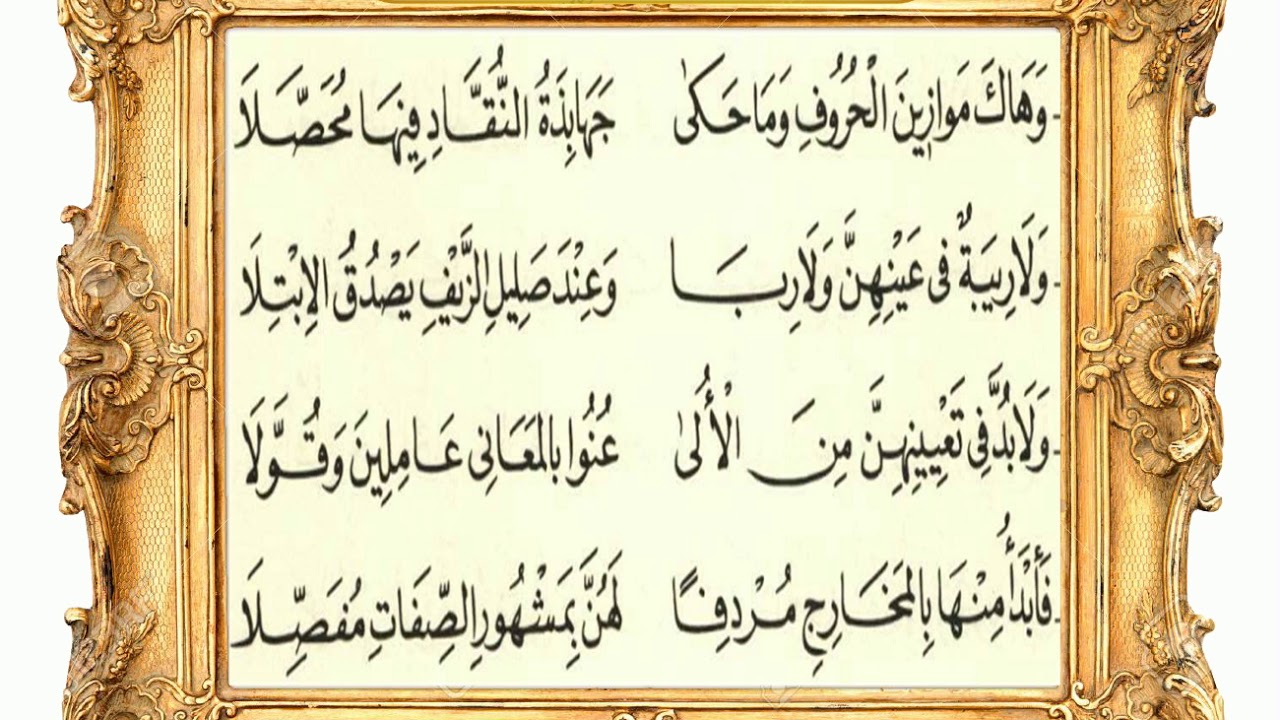 وَهَاكَ مَوَازِينَ الْحُرُوفِ وَمَا حَكَى جَهَابِذَةُ النُّقَّادِ فِيهَا مُحَصَّلَا
وَلَا رِيبَةٌ فِى عَيْنِهِنَّ وَلَا رِبَا وَعِنْدَ صَلِيلِ الزَّيْفِ يَصْدُقُ الِابْتِلَا
وَلَا بُدَّ فِى تَعْيِينِهِنَّ مِنَ الْأُلَى عُنُوا بِالْمَعَانِى عَامِلِينَ وَقُوَّلَا
فَأَبْدَأُ مِنْهَا بِالْمَخَارِجِ مُرْدِفًا لَهُنَّ بِمَشْهُورِ الصِّفَاتِ مُفَصِّلَا